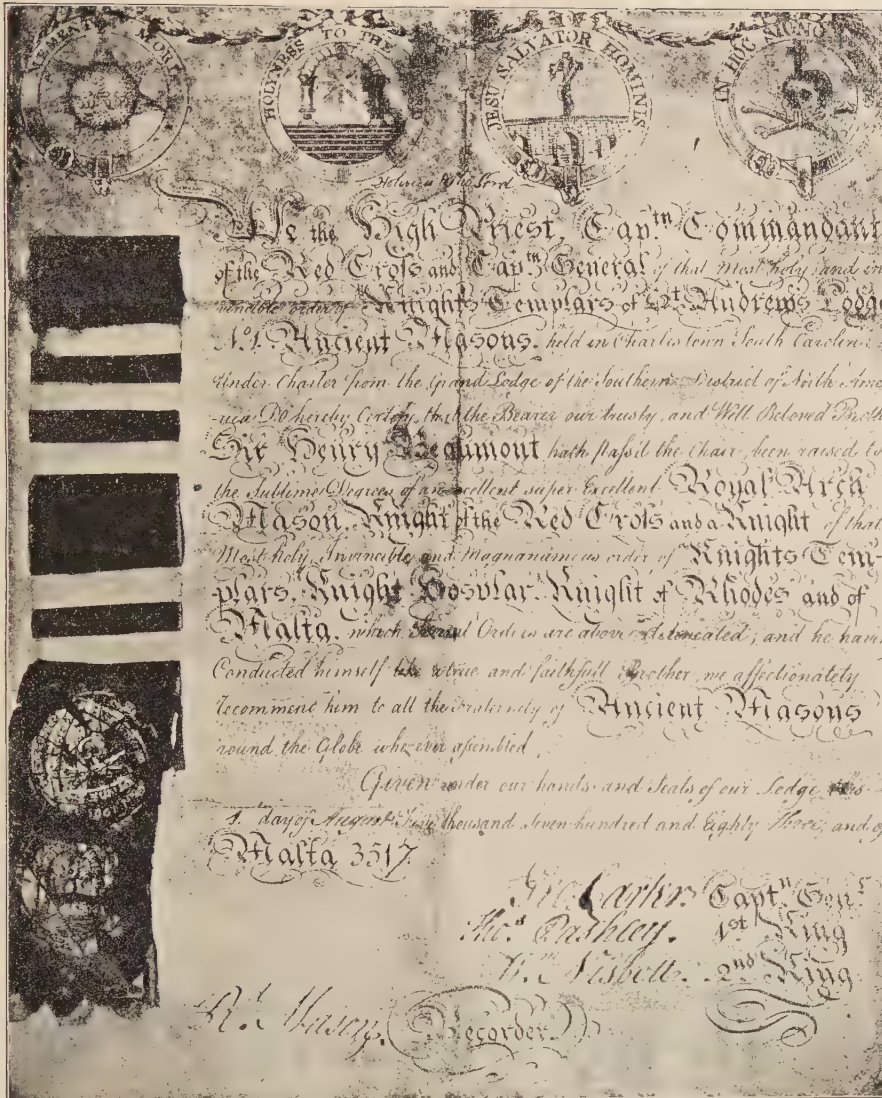 MEMENTO MORI
HOLYNESS TO THE
JESU SALVATOR HOMINIS
IN HOC SIGNO
Holiness to the Lord
We the High Priest, Captn Commandant
of the Red Cross and Captn General of that Most holy and in
vincible order of Knights Templars of St. Andrew's Lodge
No. 1. Ancient Masons. held in Charlestown South Carolina
Under Charter from the Grand Lodge of the Southern District of North Ame
rica Do hereby Certify, that the Bearer our trusty, and Well Beloved Broth
Sir Henry Beaumont hath passil the Chair, been raised to
the Sublime Degrees of an excellent super Excellent Royal Arch
Mason, Knight of the Red Cross and a Knight of that
Most holy, Invincible, and Magnanimous order of Knights Tem-
plars, Knight Hosplar, Knight of Rhodes and of
Malta, which Several Orders are above delineated; and he havi
Conducted himself like a true and faithfull Brother, we affectionately
recommend him to all the Fraternity of Ancient Masons
round the Globe wherever assembled
Given under our hands and Seals of our Lodge this
1. day of August Five thousand seven hundred and Eighty Three, and of
Malta 3517.
Captn. Genl.
Thos. Pashley. 1st King
Wm. Nisbett. 2nd King
Rt. Mason. Recorder